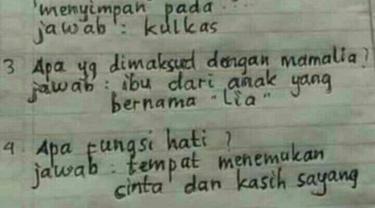 menyimpan pada ...
jawab : kulkas
3 Apa yg dimaksud dengan mamalia?
jawab : ibu dari anak yang
bernama "Lia"
4. Apa fungsi hati ?
jawab : tempat menemukan
cinta dan kasih sayang